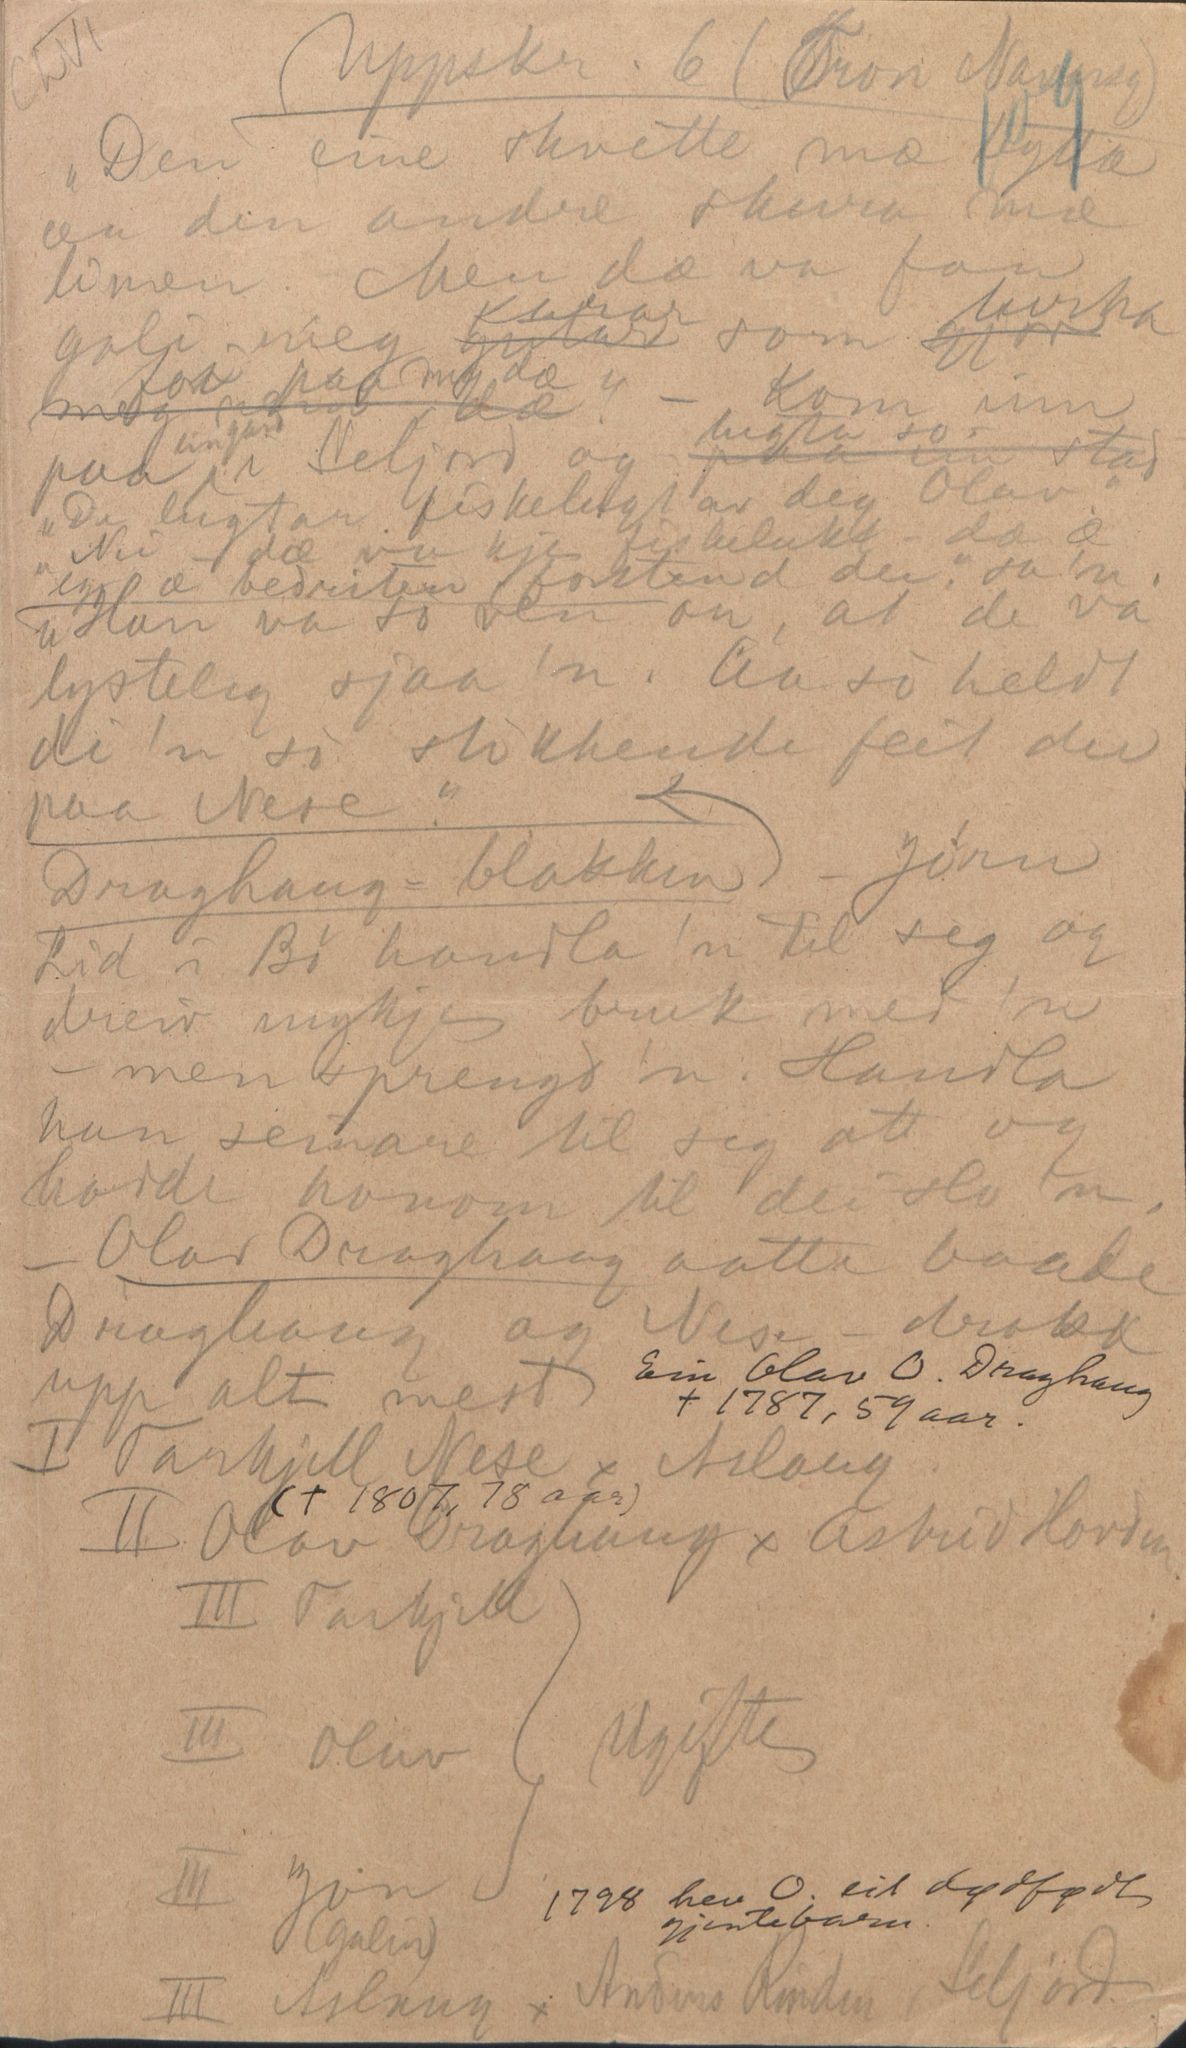 Uppskr. 6 (Tron
109
"Den eine skvette mæ
æu den andre skura mæ
limen. Men dæ va fan
gali meg kurar som
fox paa my dæ" – Kom inn
paa ein gard i Seljord og lugta so.
"De lugtar fiskelugt av deg Olav."
"Nei – dæ va kje fiskelukt – dæ æ
eg æ bedriten, forstend dei." sa 'n.
"Han va so ven on, at de va
lysteleg sjaa 'n. Aa so heldt
di 'n so stikkende feit dei
paa Nese."
Draghaug-blakken – Jørn
Lid i Bø handla 'n til seg og
dreiv mykje bruk med 'n
– men sprengd 'n. Handla
han seinare til seg att og
havde honom til dei slo 'n.
– Olav Draghaug aatte baade
Draghaug og Nese – drakk
upp alt mest
Ein Olav O. Draghaug
+ 1787, 59 aar.
I Tarkjell Nese x Aslaug
(+ 1807, 78 aar)
II Olav Draghaug x Astrid
III Tarkjell
III Olav
Ugifte
III Jon
(galin)
1798 hev O. eit dødfødt
gjentebarn.
III Aslaug x Anders Rinden, Seljord